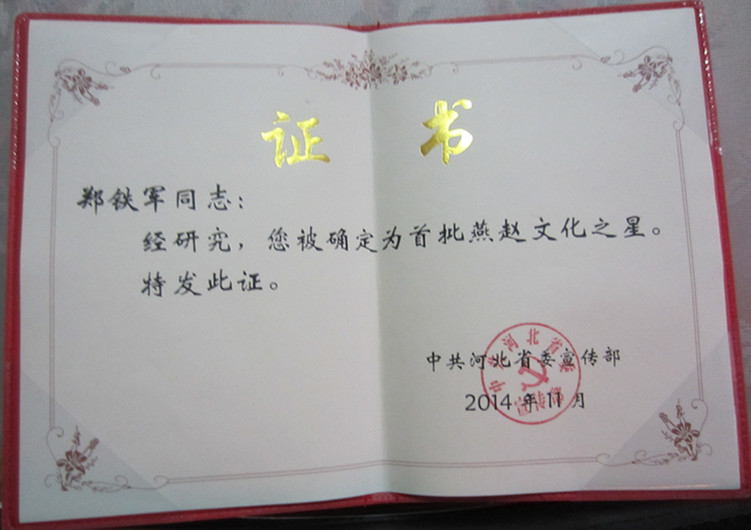 证书
郑铁军同志：
经研究，您被确定为首批燕赵文化之星。
特发此证。
中共河北省委宣传部
2014年11月
中共河北省委
宣传部